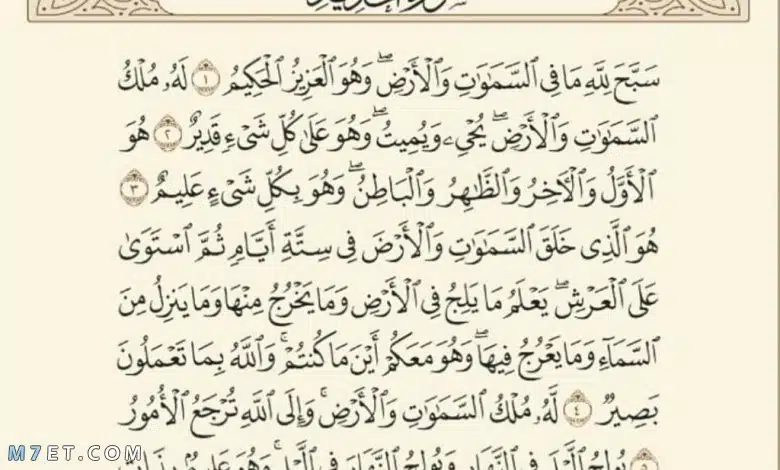 سورة الحديد
سَبَّحَ لِلَّهِ مَا فِي ٱلسَّمَٰوَٰتِ وَٱلْأَرْضِۖ وَهُوَ ٱلْعَزِيزُ ٱلْحَكِيمُ ١ لَهُۥ مُلْكُ
ٱلسَّمَٰوَٰتِ وَٱلْأَرْضِۖ يُحْيِۦ وَيُمِيتُۖ وَهُوَ عَلَىٰ كُلِّ شَىْءٍ قَدِيرٌ ٢ هُوَ
ٱلْأَوَّلُ وَٱلْءَاخِرُ وَٱلظَّٰهِرُ وَٱلْبَاطِنُۖ وَهُوَ بِكُلِّ شَىْءٍ عَلِيمٌ ٣
هُوَ ٱلَّذِى خَلَقَ ٱلسَّمَٰوَٰتِ وَٱلْأَرْضَ فِى سِتَّةِ أَيَّامٍ ثُمَّ ٱسْتَوَىٰ
عَلَى ٱلْعَرْشِۖ يَعْلَمُ مَا يَلِجُ فِى ٱلْأَرْضِ وَمَا يَخْرُجُ مِنْهَا وَمَا يَنزِلُ مِنَ
ٱلسَّمَآءِ وَمَا يَعْرُجُ فِيهَاۖ وَهُوَ مَعَكُمْ أَيْنَ مَا كُنتُمْۚ وَٱللَّهُ بِمَا تَعْمَلُونَ
بَصِيرٌ ٤ لَّهُۥ مُلْكُ ٱلسَّمَٰوَٰتِ وَٱلْأَرْضِۚ وَإِلَى ٱللَّهِ تُرْجَعُ ٱلْأُمُورُ
٥ يُولِجُ ٱلَّيْلَ فِى ٱلنَّهَارِ وَيُولِجُ ٱلنَّهَارَ فِى ٱلَّيْلِۚ وَهُوَ عَلِيمٌۢ بِذَاتِ
M7ET.COM